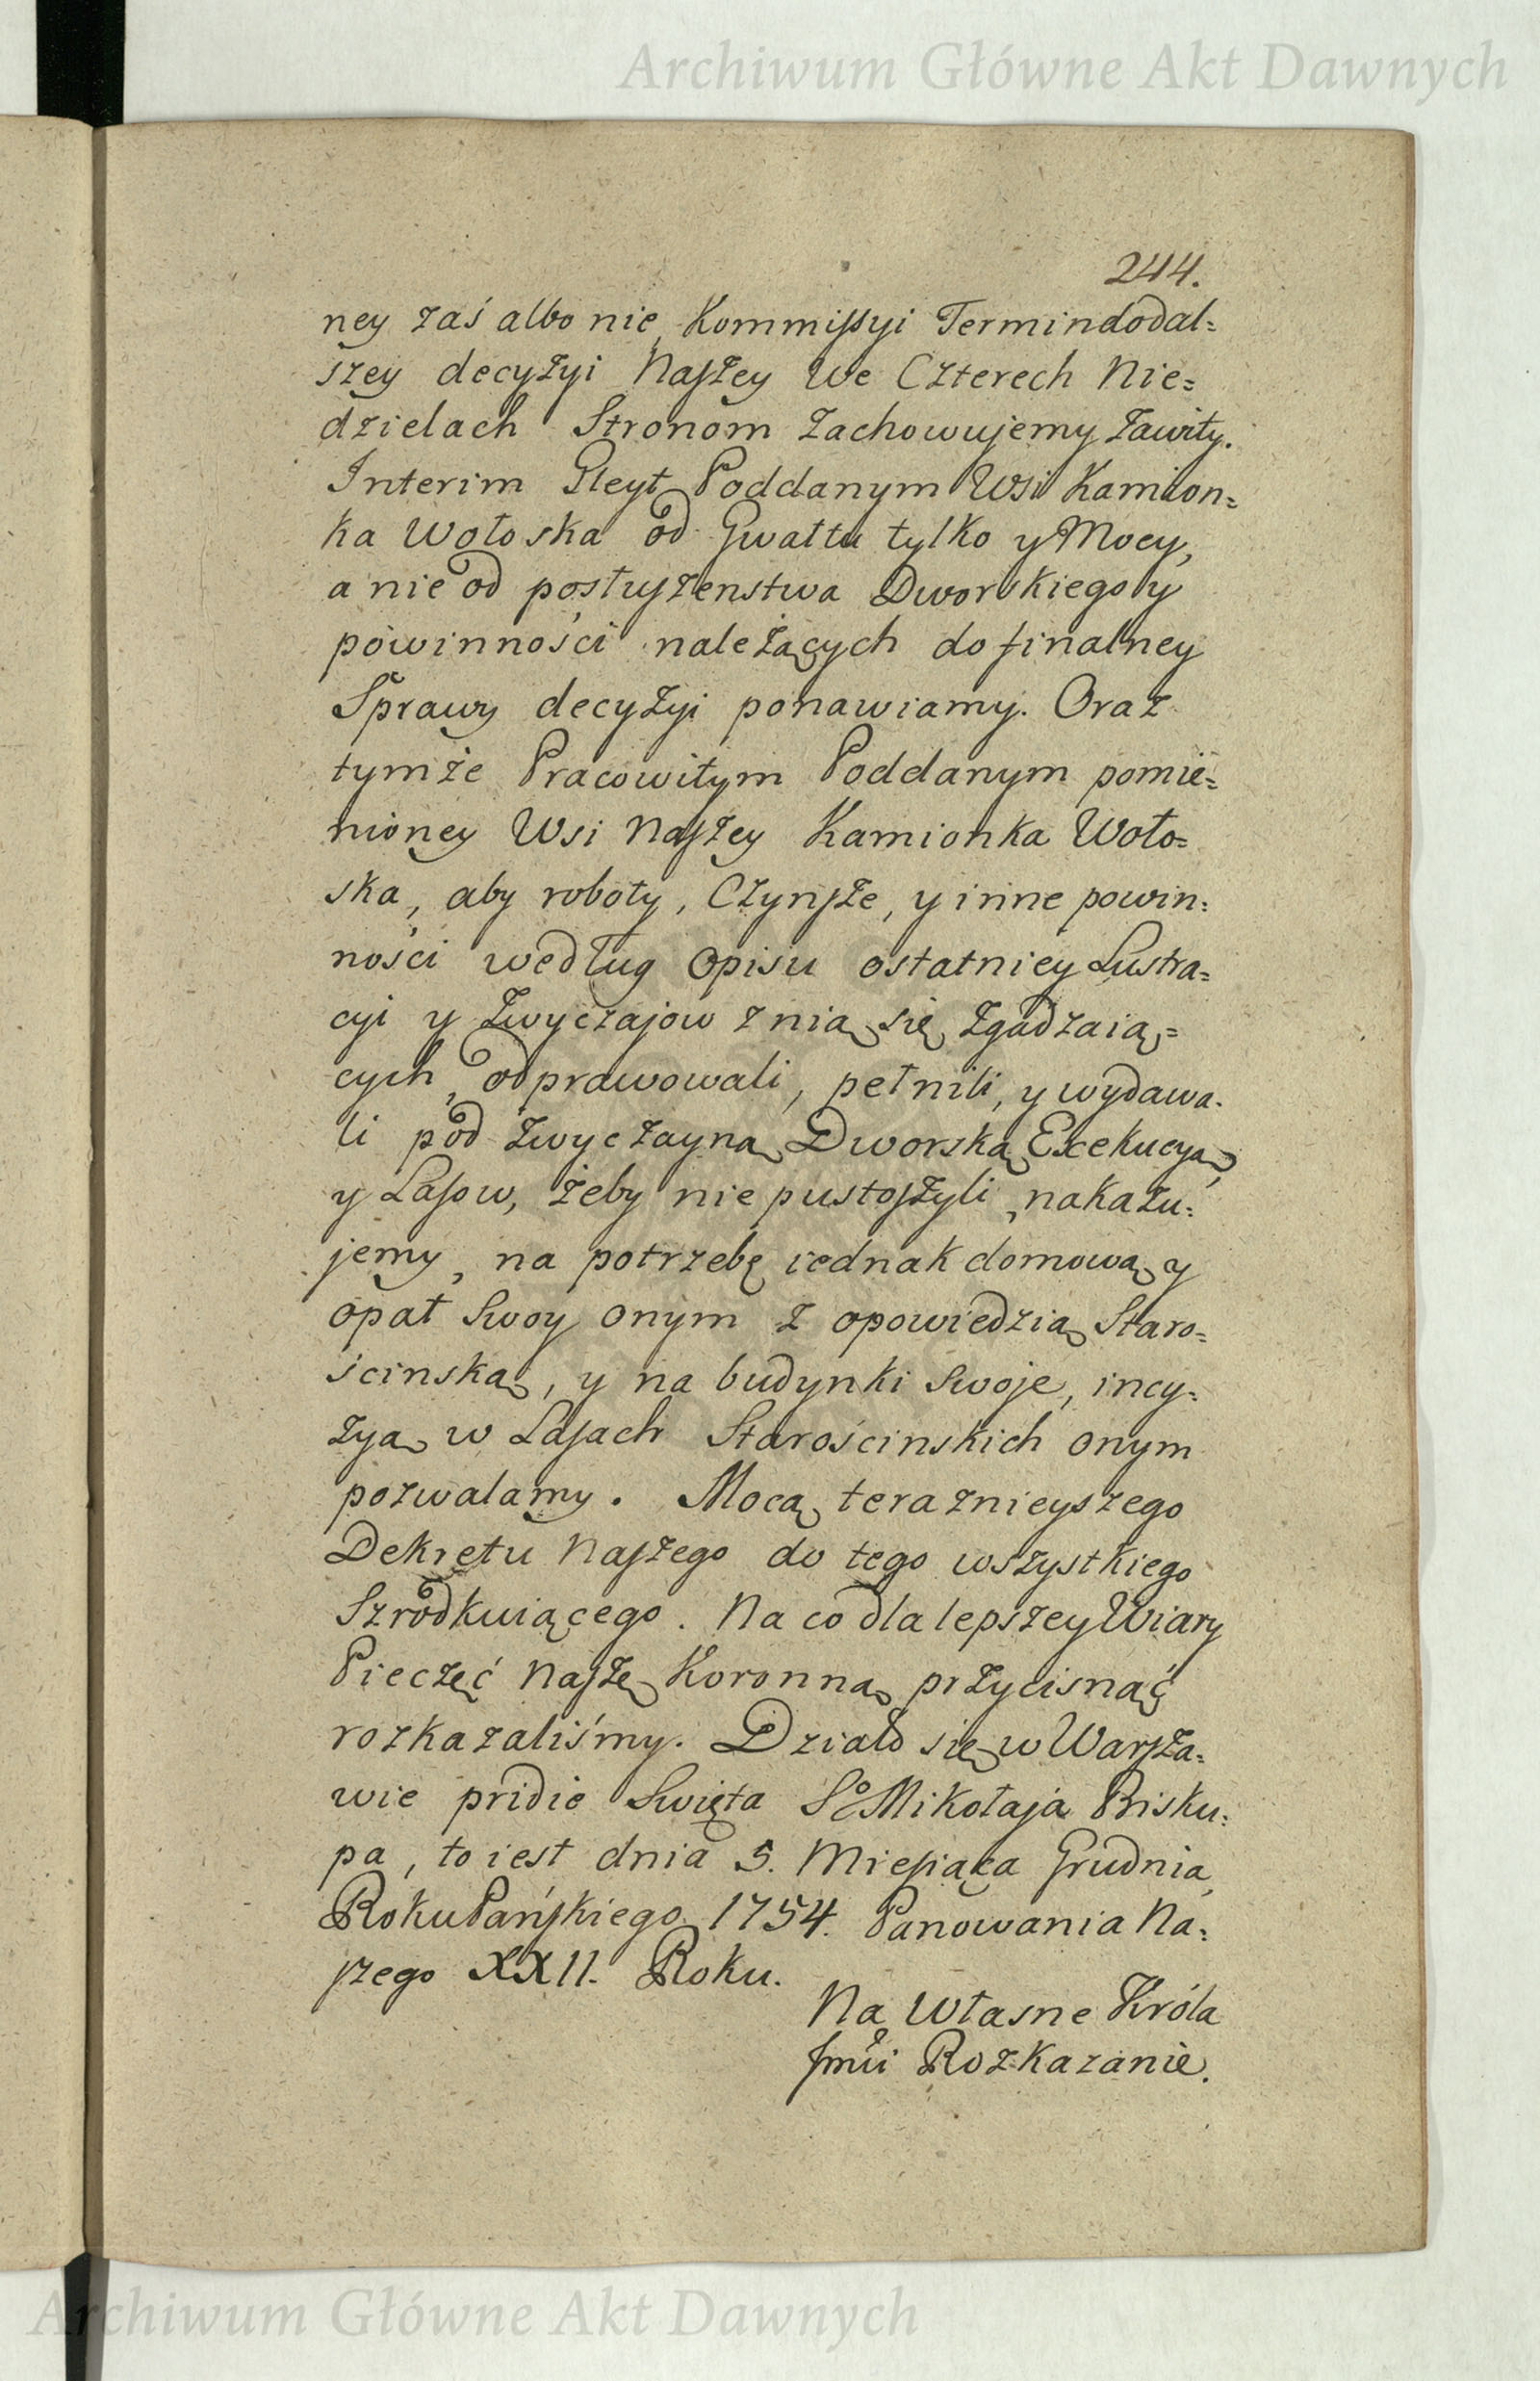 Archiwum Główne Akt Dawnych
244.
ney zaś albo nie, Kommissyi Termin do dal=
szey decyzyi Naszey we Czterech Nie=
dzielach Stronom zachowujemy zawity.
Interim Gleyt Poddanym Wsi Kamion=
ka Wołoska od Gwałtu tylko y Mocy,
a nie od posłuszenstwa Dworskiego y
powinności należących do finalney
Sprawy decyzyi ponawiamy. Oraz
tymże Pracowitym Poddanym pomie=
nioney Wsi Naszey Kamionka Woło=
ska, aby roboty, Czynsze, y inne powin=
ności według Opisu ostatniey Lustra=
cyi y Zwyczajow z nią się zgadzaią=
cych, odprawowali, pełnili, y wydawa=
li pod zwyczayną Dworską Exekucyą,
y Lasow, żeby nie pustoszyli, nakazu=
jemy, na potrzebę iednak domową y
opał Swoy onym z opowiedzią Staro=
ścinską, y na budynki Swoje, incy=
zyą w Lasach Starościnskich onym
pozwalamy. Mocą teraznieyszego
Dekretu Naszego do tego wszystkiego
Szrodkuiącego. Na co dla lepszey Wiary
Pieczęć Naszę Koronną przycisnąć
rozkazaliśmy. Działo się w Warsza=
wie pridie Swięta So Mikołaja Bisku=
pa, to iest dnia 5. Miesiąca Grudnia,
Roku Pańskiego 1754. Panowania Na=
szego XXII. Roku.
Na Własne Króla
Jmći Rozkazanie.
Archiwum Główne Akt Dawnych